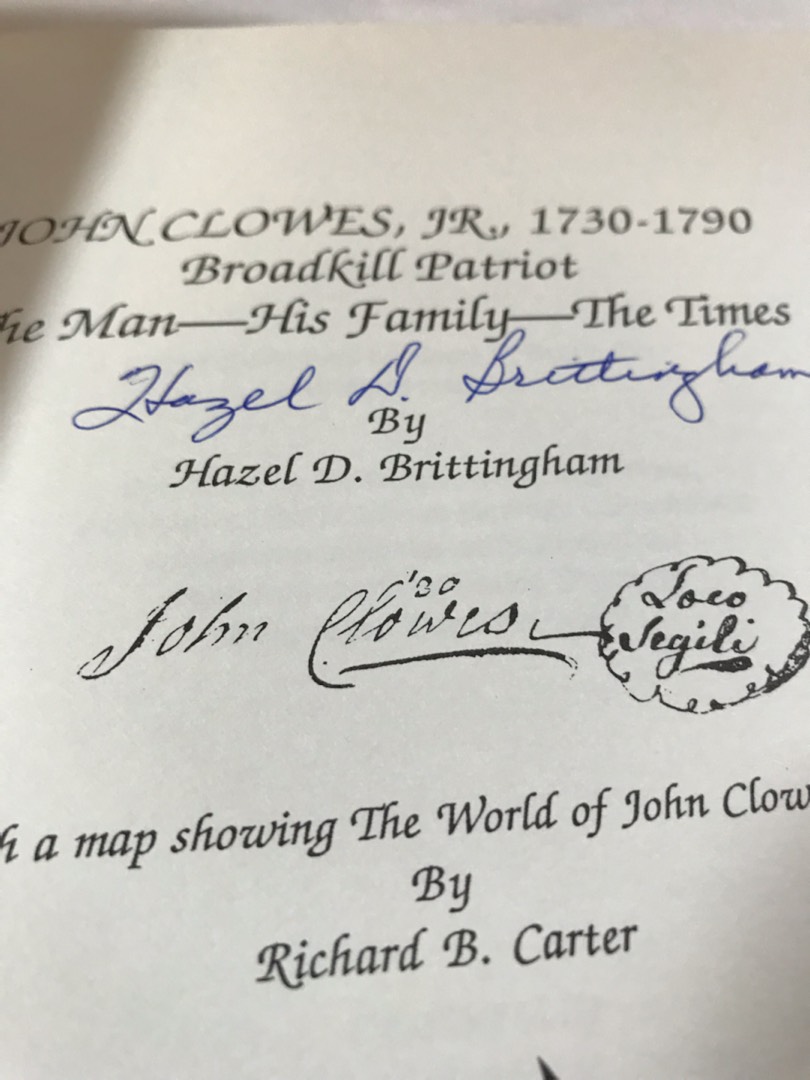 JOHN CLOWES, JR., 1730-1790
Broadkill Patriot
he Man—His Family—The Times
Hazel D. Brittingham
By
Hazel D. Brittingham
John Clowes
Loco
Segili
h a map showing The World of John Clow
By
Richard B. Carter